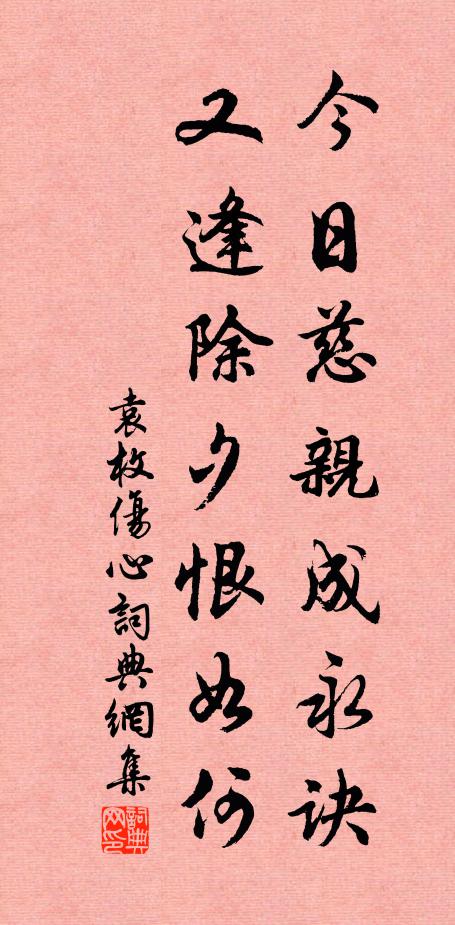 今日慈親成永诀
又逢除夕恨如何
袁枚傷心詞典網集
詞典网印